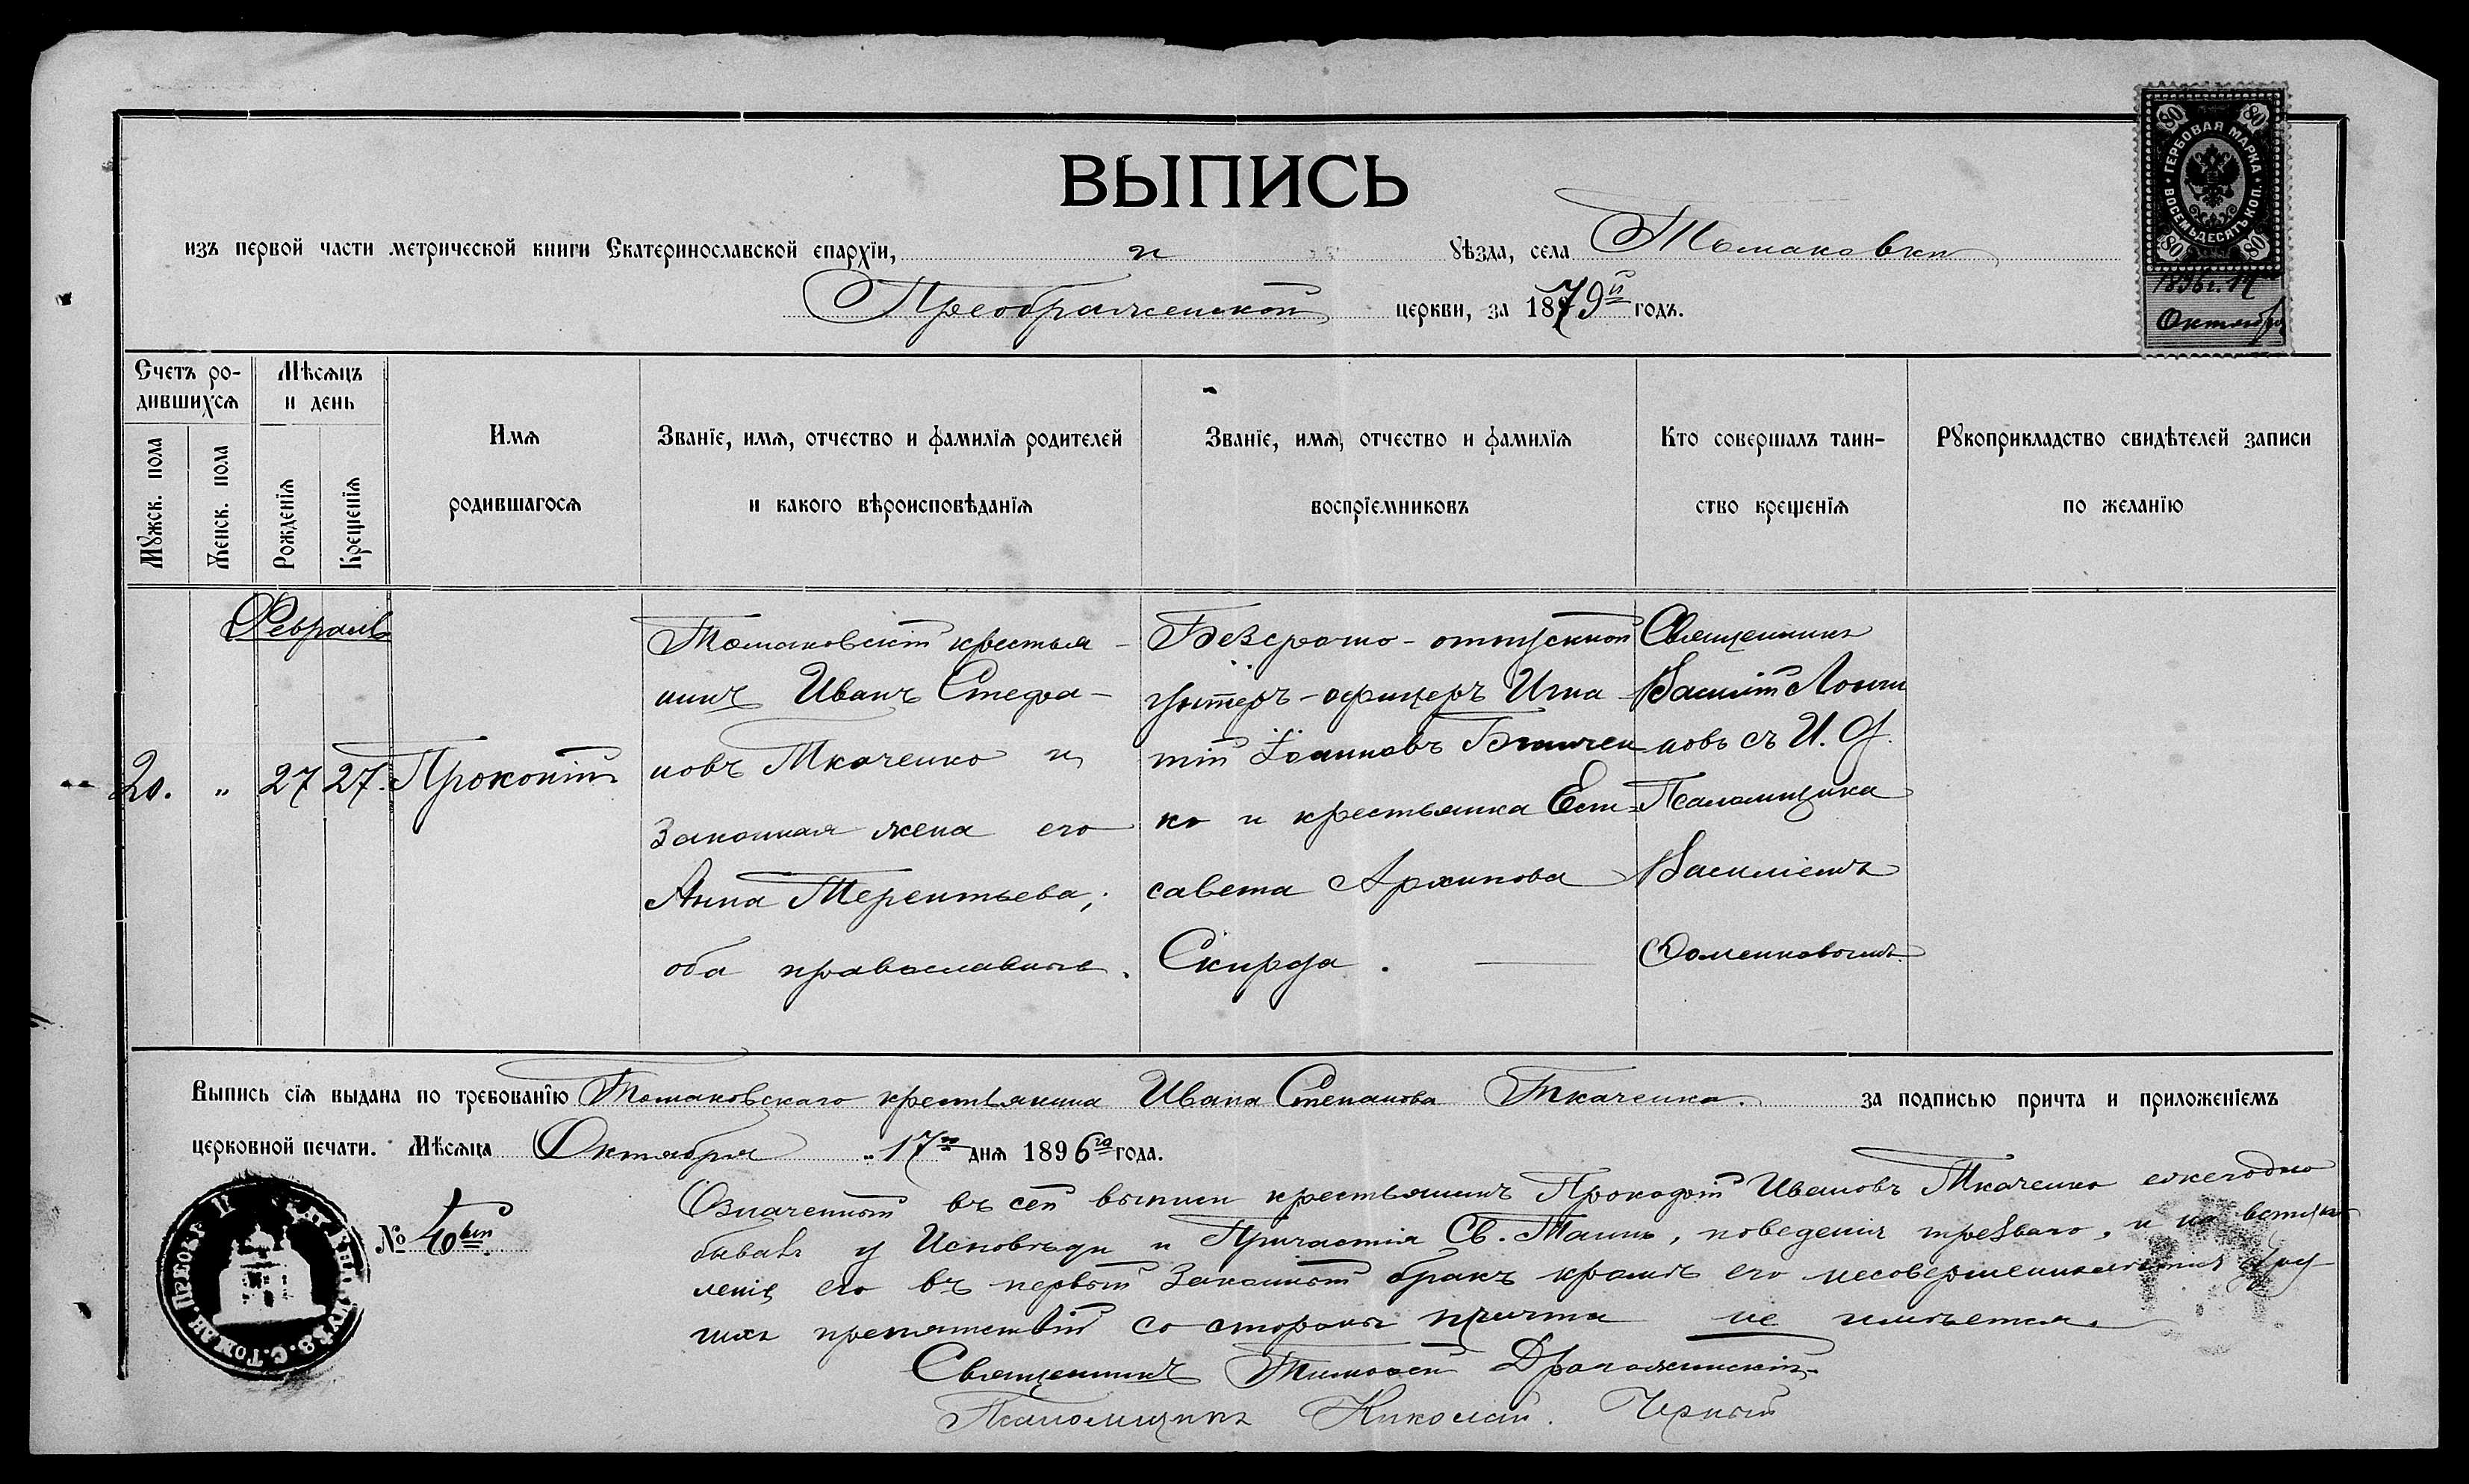 ВЫПИСЬ
изъ первой части метрической книги Екатеринославской епархіи, и уѣзда, села Томаковки
Преображенской церкви, за 1879й годъ.
80 80
ГЕРБОВАЯ МАРКА
ВОСЕМЬДЕСЯТЬ КОП.
80 80
1896г. 17го
Октября
Счетъ ро-
дившихся
Мужск. пола
Женск. пола
Мѣсяцъ
и день
Рожденія
Крещенія
Имя
родившагося
Званіе, имя, отчество и фамилія родителей
и какого вѣроисповѣданія
Званіе, имя, отчество и фамилія
воспріемниковъ
Кто совершалъ таин-
ство крещенія
Рукоприкладство свидѣтелей записи
по желанію
Февраль
20. „ 27 27. Прокопій
Томаковскій крестья-
нинъ Иванъ Стефа-
новъ Ткаченко и
законная жена его
Анна Терентьева;
оба православные.
Безсрочно-отпускной
унтеръ-офицеръ Игна
тій Іоанновъ
ко и крестьянка Ели=
савета Архипова
Скирда.
Священникъ
Василій Логви
новъ съ И. д.
Псаломщика
Василіемъ
Доменковымъ.
Выпись сія выдана по требованію Томаковскаго крестьянина Ивана Степанова Ткаченка. за подписью причта и приложеніемъ
церковной печати. Мѣсяца Октября „17го дня 1896го года.
№ 40й
Означенный въ сей выписи крестьянинъ Прокофій Ивановъ Ткаченко ежегодно
бывалъ у Исповѣди и Причастія Св. Таинъ, поведенія трезваго, и на вступ
леніе его въ первый законный бракъ кромѣ его несовершеннолѣтія дру
гихъ препятствій со стороны причта не имѣется.
Священникъ Тимофей Драгожинскій.
Псаломщикъ Николай Черный